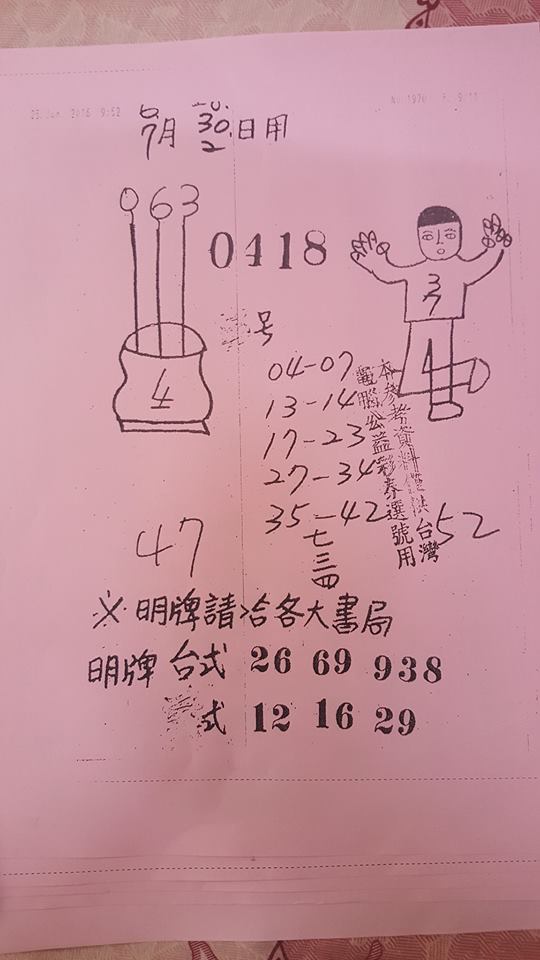 25 Jan 2016 9:52
No.1970 P. 9/11
6
7月 30 2 日用
0 6 3
0418
3
7
4
1
号
04-07
13-14
17-23
27-34
35-42
七
三
四
本參考資料僅供台灣
電腦公益彩券選號用
47
52
※明牌請洽各大書局
明牌 台式 26 69 938
式 12 16 29